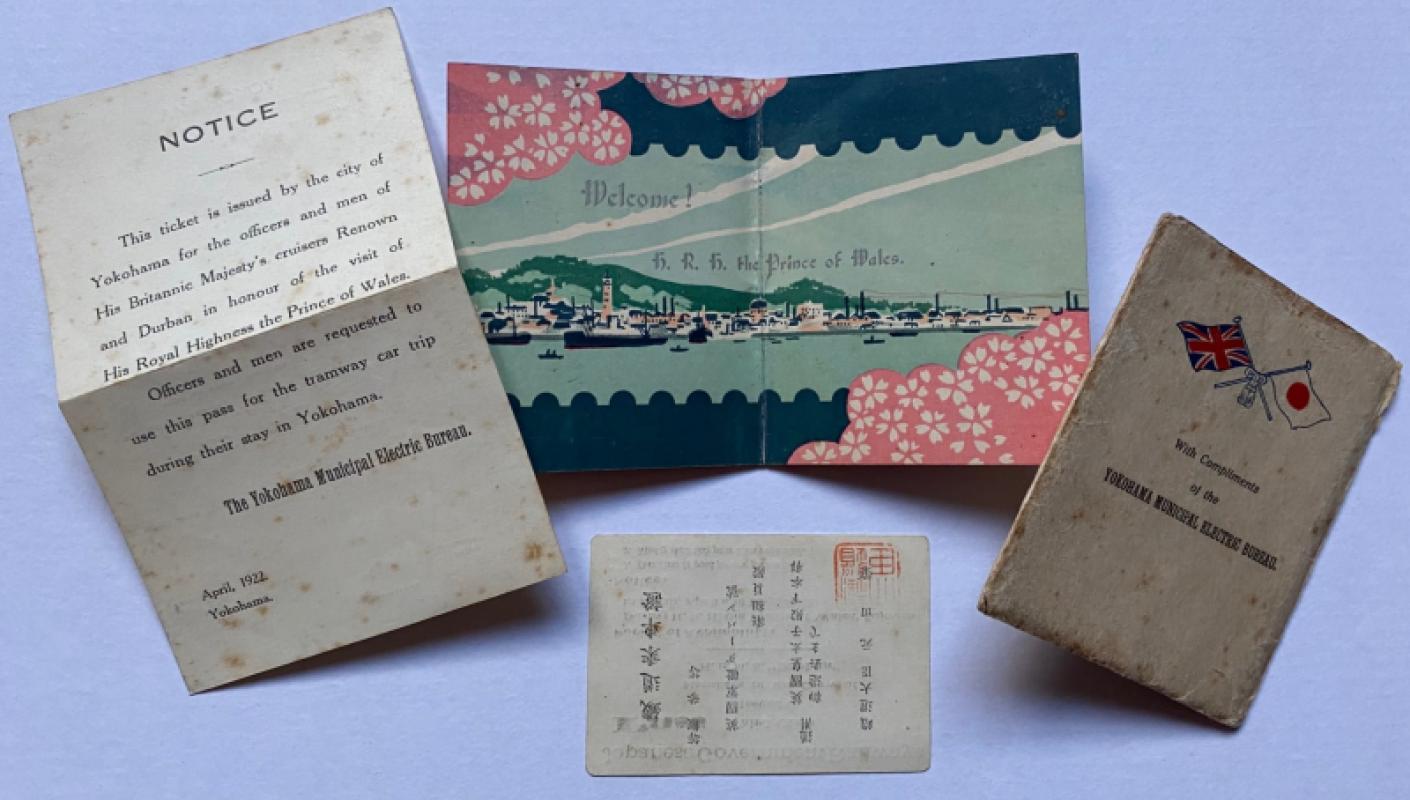 NOTICE
This ticket is issued by the city of
Yokohama for the officers and men of
His Britannic Majesty's cruisers Renown
and Durban in honour of the visit of
His Royal Highness the Prince of Wales.
Officers and men are requested to
use this pass for the tramway car trip
during their stay in Yokohama.
The Yokohama Municipal Electric Bureau.
April, 1922.
Yokohama.
Welcome!
H. R. H. the Prince of Wales.
With Compliments
of the
YOKOHAMA MUNICIPAL ELECTRIC BUREAU.
鐵道乗車證
英國軍艦ダーバン號
乗組員殿
英國皇太子殿下本邦
鐵道大臣 元田
Japanese Government Railways